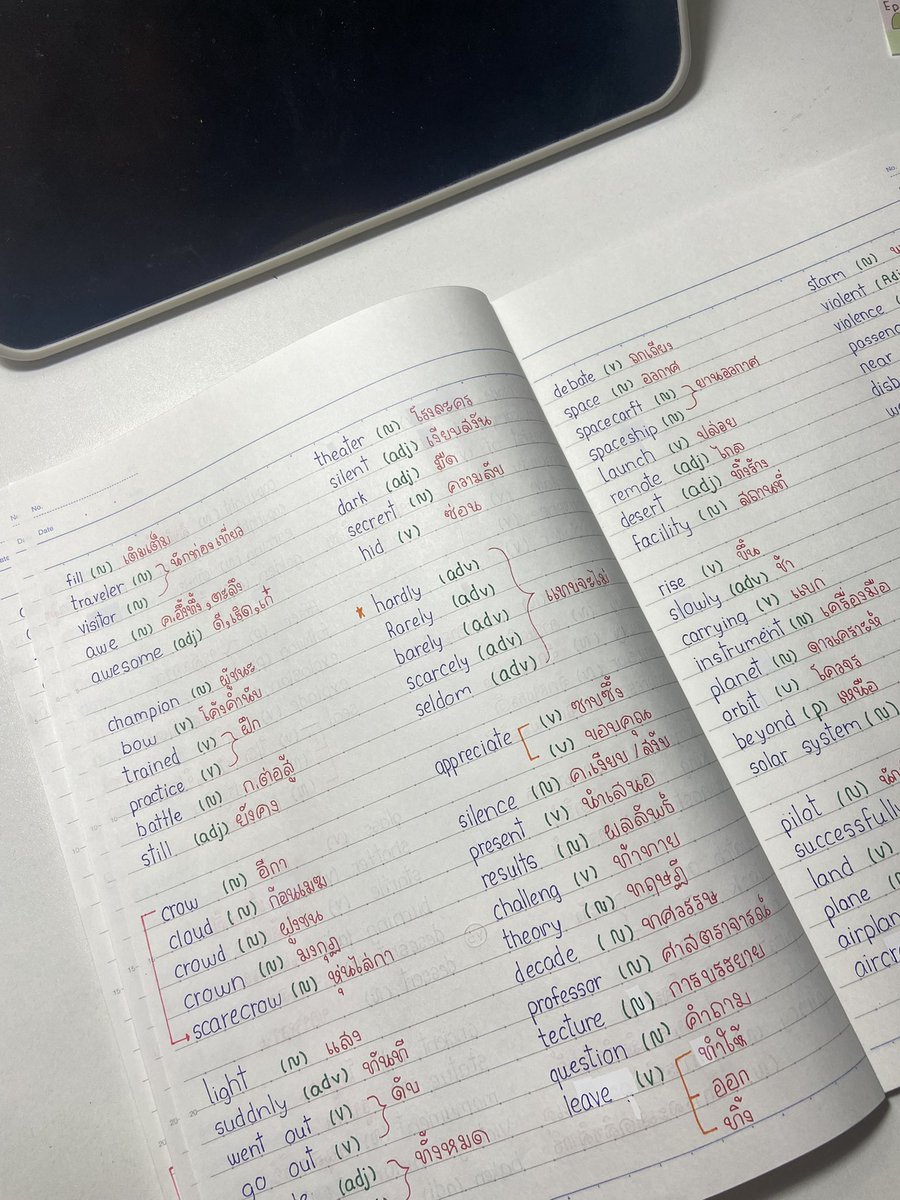 Ep
No.
No.
Date
fill (ν) เติมเต็ม
traveler (ν)
visitor (ν)
นักท่องเที่ยว
awe (ν) ค.อึ้งทึ่ง, ตะลึง
awesome (adj) ดี, เริด, เก๋
champion (ν) ผู้ชนะ
bow (v) โค้งคำนับ
trained (v)
practice (v)
ฝึก
battle (ν) ก.ต่อสู้
still (adj) ยังคง
crow (ν) อีกา
cloud (ν) ก้อนเมฆ
crowd (ν) ฝูงชน
crown (ν) มงกุฎ
scarecrow (ν) หุ่นไล่กา
light (ν) แสง
suddnly (adv) ทันที
went out (v)
go out (v)
ดับ
(adj) ทั้งหมด
theater (ν) โรงละคร
silent (adj) เงียบสงัน
dark (adj) มืด
secrert (ν) ความลับ
hid (v) ซ่อน
* hardly (adv)
Rarely (adv)
barely (adv)
scarcely (adv)
seldom (adv)
แทบจะไม่
appreciate (v) ซาบซึ้ง
(v) ขอบคุณ
silence (ν) ค.เงียบ / สงับ
present (v) นำเสนอ
results (ν) ผลลัพธ์
challeng (v) ท้าทาย
theory (ν) ทฤษฎี
decade (ν) ทศวรรษ
professor (ν) ศาสตราจารณ์
tecture (ν) การบรรยาย
question (ν) คำถาม
leave (v) ทำให้
ออก
ทิ้ง
debate (v) ถกเถียง
space (ν) อวกาศ
spacecarft (ν)
spaceship (ν)
ยานอวกาศ
launch (v) ปล่อย
remote (adj) ไกล
desert (adj) ทิ้งร้าง
facility (ν) สถานที่
rise (v) ขึ้น
slowly (adv) ช้า
carrying (v) แบก
instrument (ν) เครื่องมือ
planet (ν) ดาวเคราะห์
orbit (v) โคจร
beyond (p) เหนือ
solar system (ν)
pilot (ν)
successfully
land (v)
plane
airplan
aircr
storm (ν)
violent (Adj
violence
passen
near
disb